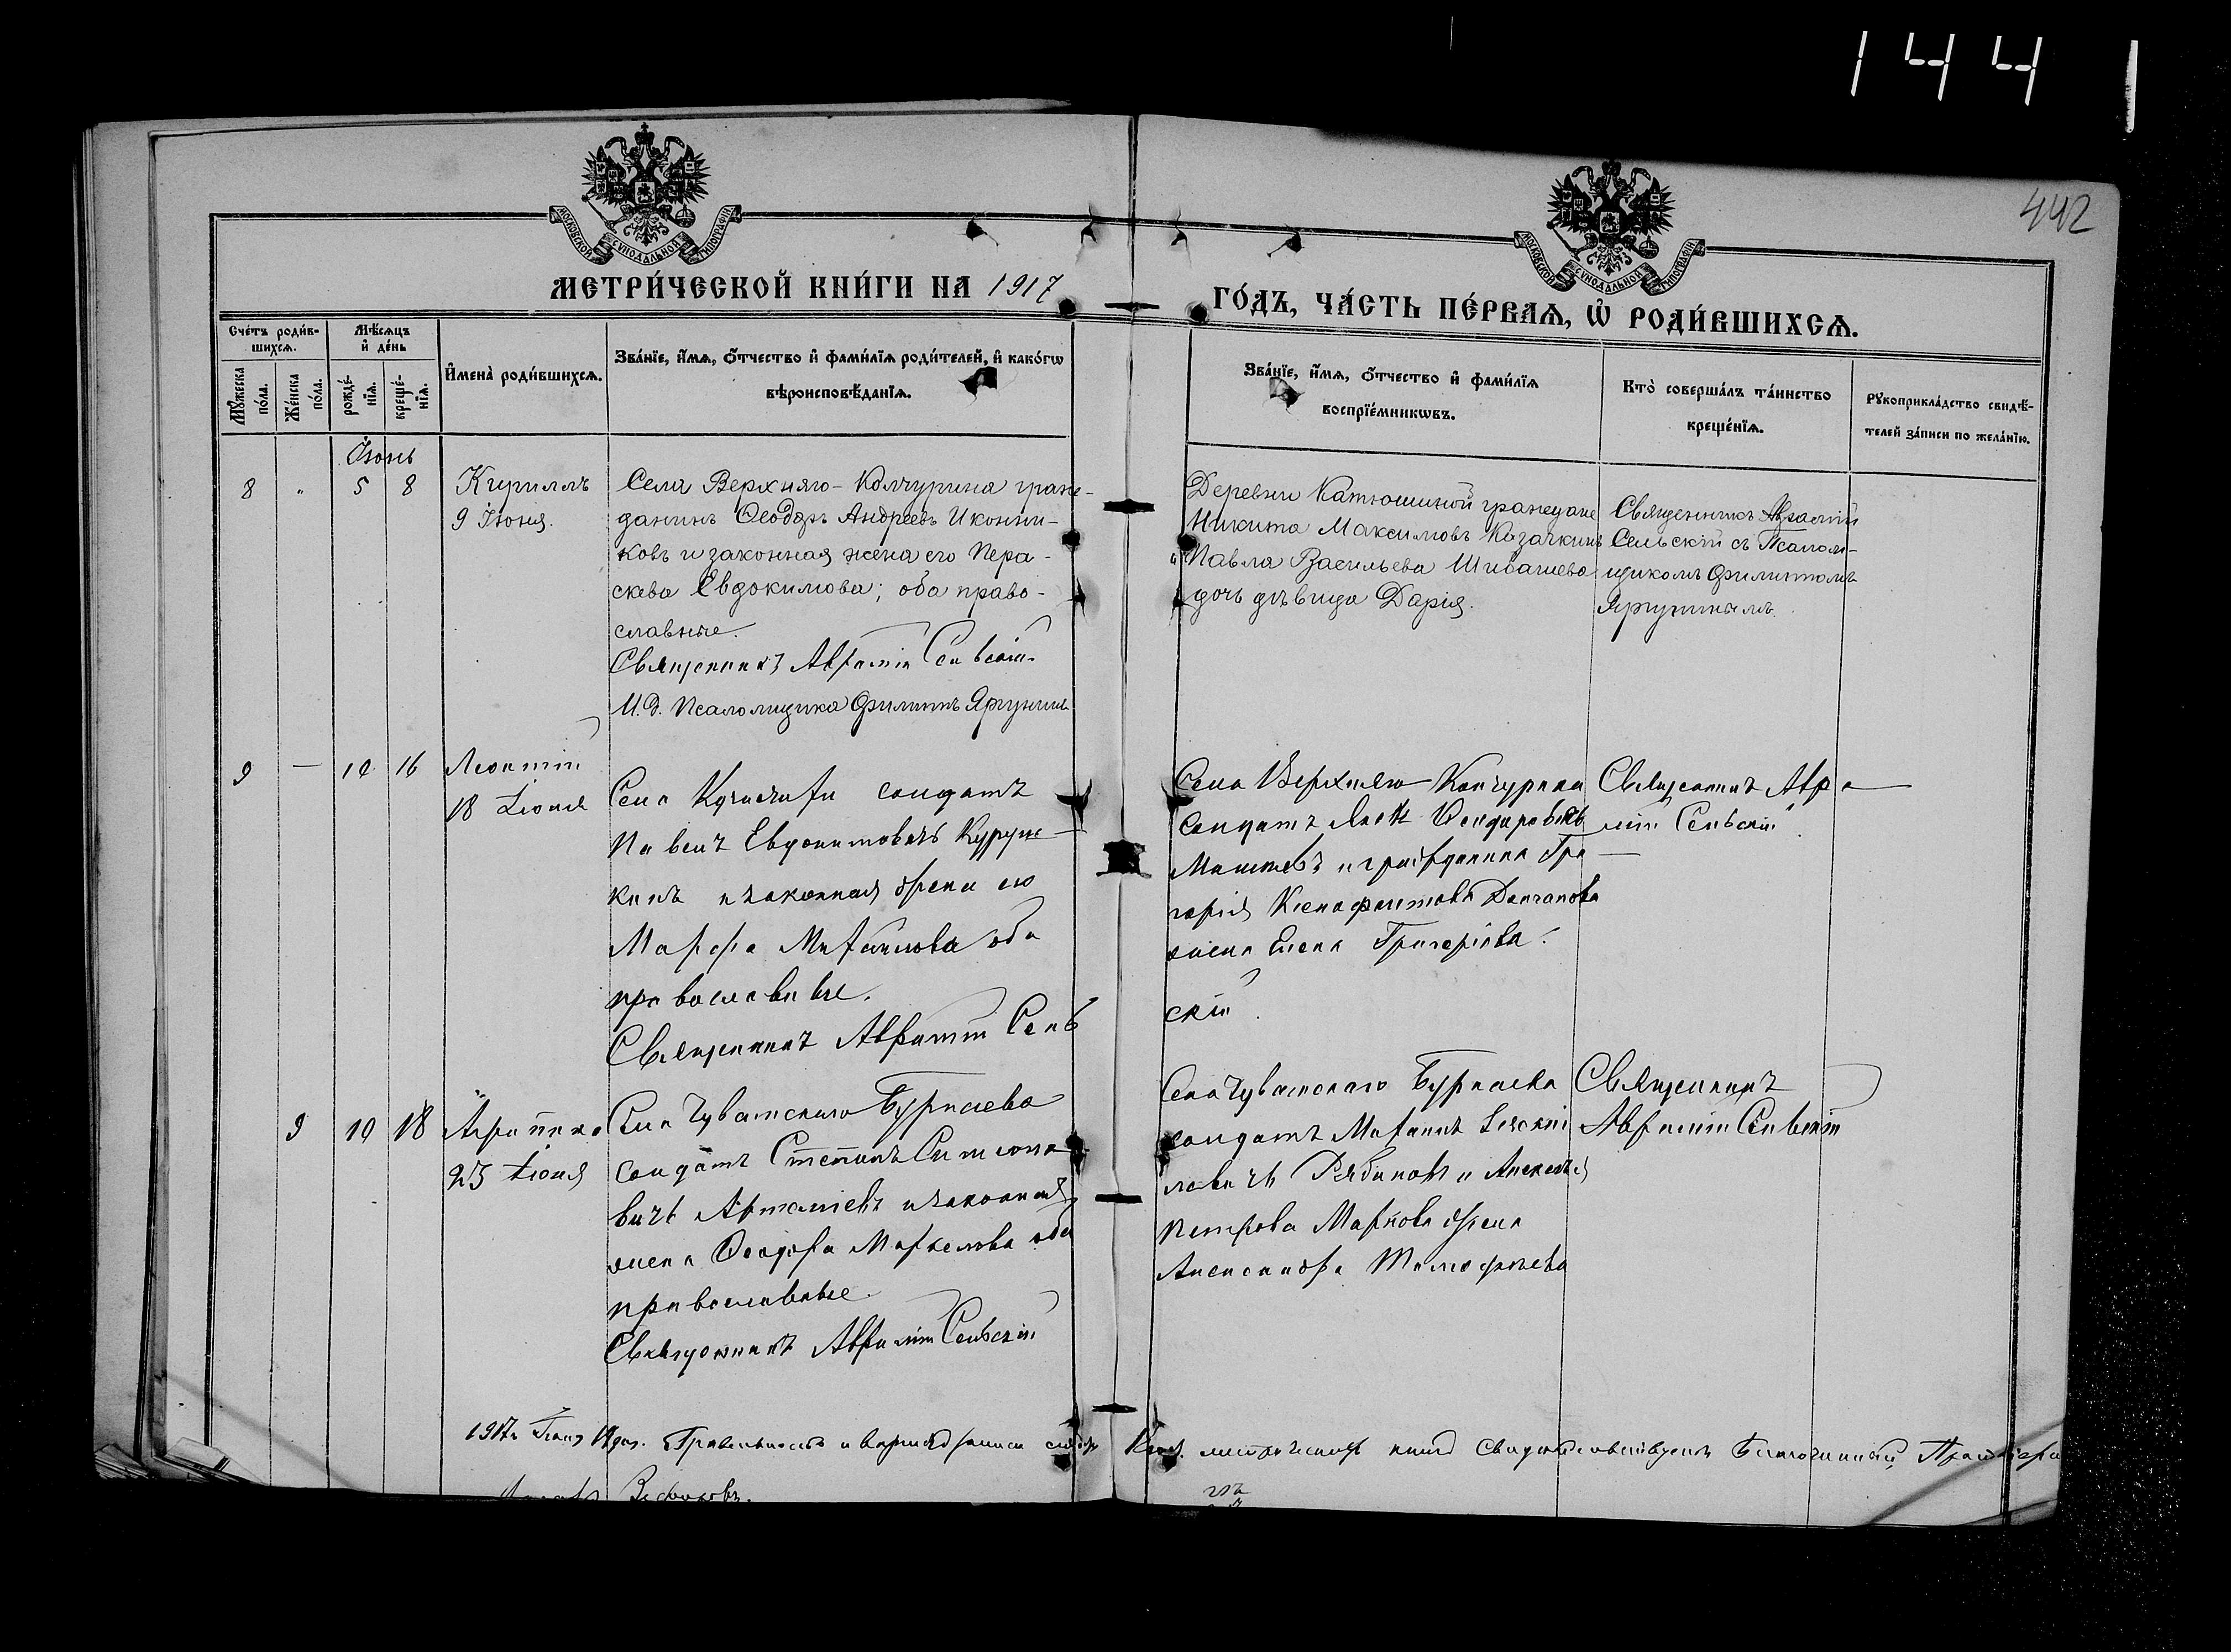 1441
442
МОСКОВСКОЙ СУНОДАЛЬНОЙ ТИПОГРАФІИ
МОСКОВСКОЙ СУНОДАЛЬНОЙ ТИПОГРАФІИ
МЕТРИ́ЧЕСКОЙ КНИ́ГИ НА 1917
ГО́ДЪ, ЧА́СТЬ ПЕ́РВАѦ, Ѡ҆ РОДИ́ВШИХСѦ.
Сче́тъ роди́в-
шихсѧ.
Мꙋ́жеска по́ла.
Же́нска по́ла.
Мѣ́сѧцъ и҆ де́нь
рожде́-нїѧ.
креще́-нїѧ.
И҆мена̀ роди́вшихсѧ.
Зва́нїе, и҆́мѧ, ѻ҆́тчество и҆ фами́лїѧ роди́телей, и҆ како́гѡ
вѣроисповѣ́данїѧ.
Зва́нїе, и҆́мѧ, ѻ҆́тчество и҆ фами́лїѧ
воспрїе́мникѡвъ.
Кто̀ соверша́лъ та́инство
креще́нїѧ.
Рꙋкоприкла́дство свидѣ́-
телей за́писи по жела́нїю.
Іюнь
8 „ 5 8
Кириллъ
9 Іюня.
Села Верхняго-Колчурина граж-
данинъ Ѳеодоръ Андреевъ Иконни-
ковъ и законная жена его Пера-
скева Евдокимова; оба право-
славные.
Священникъ Аврамій Сельскій
И.д. Псаломщика Филиппъ Яргунинъ
Деревни Катюшиной граждане
Никита Максимовъ Казачкинъ
и Павла Васильева Шибашева
дочь дѣвица Дарія.
Священникъ Аврамій
Сельскій съ Псалом-
щикомъ Филиппомъ
Яргунинымъ.
9 — 10 16
Леонтій
18 Іюня
Села солдатъ
Павелъ Евдокимовичъ
кинъ и законная жена его
Марфа Михайлова оба
православные.
Священникъ Аврамій Сель
скій
Села Верхняго Колчурина
солдатъ
и гражданина Гри
горія Ксенофонтова
жена Елена Григоріева.
Священникъ Авра
мій Сельскій
9 10 18
Агрипина
23 Іюня
Села Чувашскаго Бурнаева
солдатъ Степанъ Симеоно
вичъ и законная
жена Ѳеодора Маркелова оба
православные.
Священникъ Аврамій Сельскій
Села Чувашскаго Бурнаева
солдатъ Михаилъ
ловичъ Рябиновъ и Алексѣя
Петрова Маркова жена
Александра Тимофѣева
Священникъ
Аврамій Сельскій
1917 г. Правильность и записи метрической книги свидѣтельствуетъ Благочинный, Протоіерей